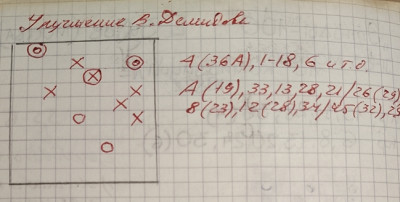 Улучшение В. Демидова
4 (36А), 1-18, 6 и т.о.
А (19), 33, 13, 28, 21/26 (29)
8 (23), 12 (28), 34/25 (32), 23